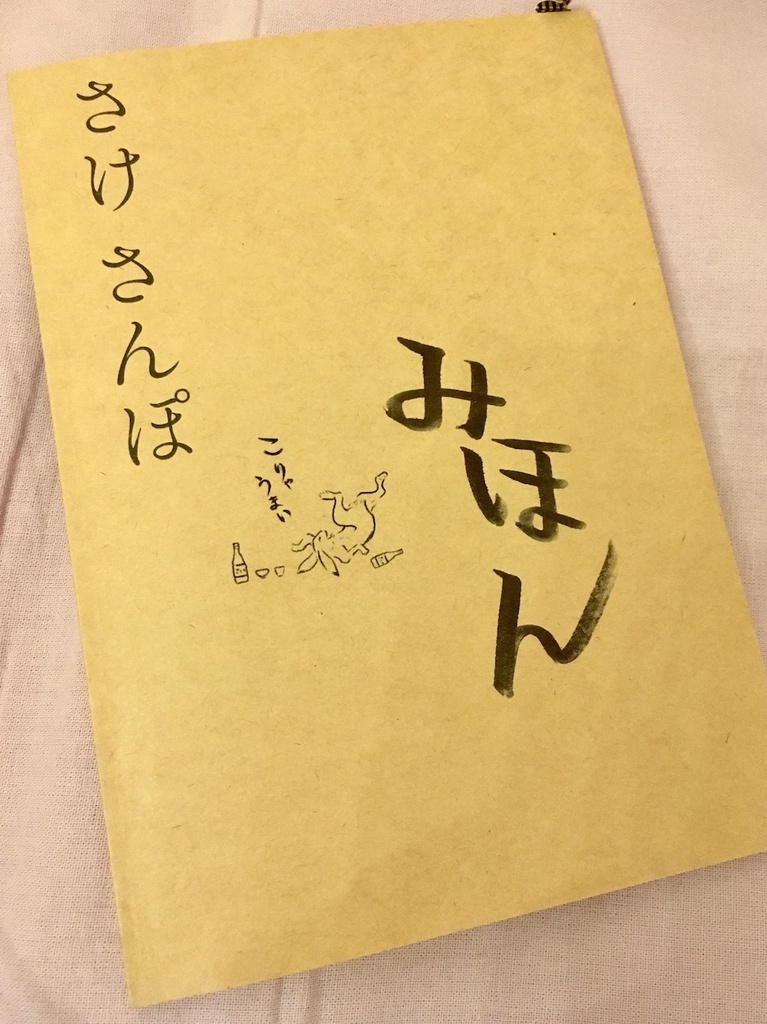 さけ さんぽ
みほん
こりゃ
うまい